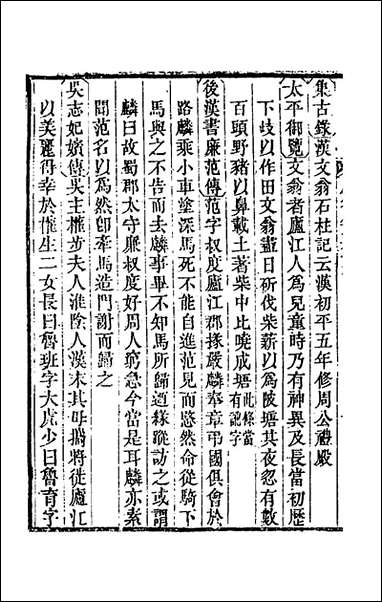 集古錄漢文翁石柱記云漢初平五年修周公禮殿
太平御覽文翁者廬江人為兒童時乃有神異及長當初歷
下歧以作田文翁晝日斫伐柴薪以為陂塘其夜忽有數
百頭野豬以鼻載土著柴中比曉成塘此條當有訛字
後漢書廉范傳范字叔度廬江郡掾嚴麟奉章弔國俱會於
路麟乘小車塗深馬死不能自進范見而愍然命從騎下
馬與之不告而去麟事畢不知馬所歸迺緣蹤訪之或謂
麟曰故蜀郡太守廉叔度好周人窮急今當是耳麟亦素
聞范名以為然卽牽馬造門謝而歸之
吳志妃嬪傳吳主權步夫人淮陰人漢末其母攜將徙廬江
以美麗得幸於權生二女長曰魯班字大虎少曰魯育字